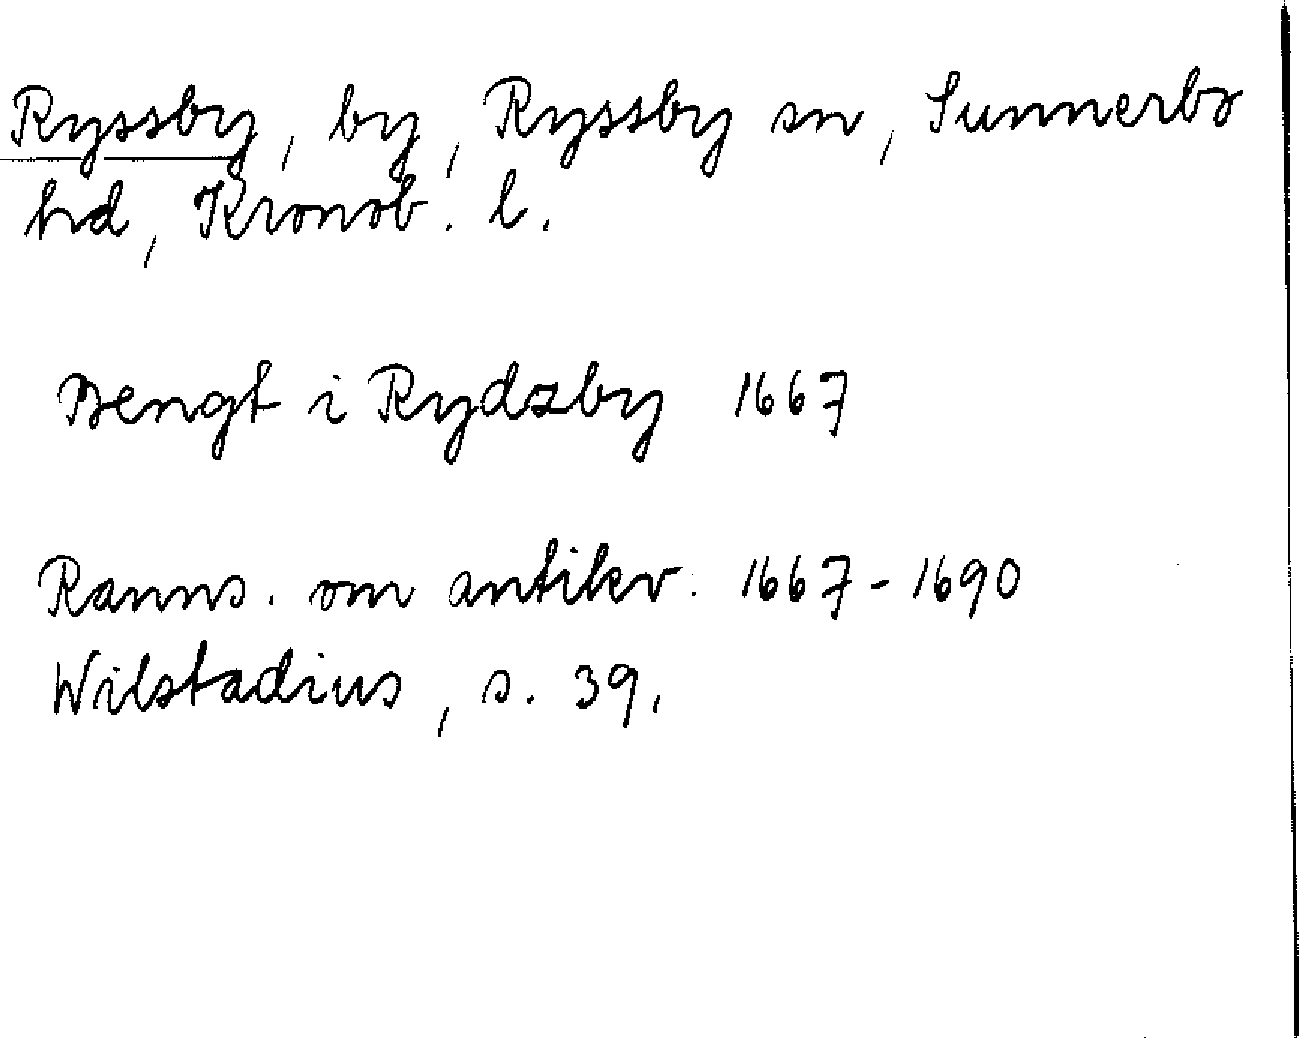 Ryssby, by, Ryssby sn, Sunnerbo
hd, Kronob. l.
Bengt i Rydzby 1667
Ranns. om antikv. 1667-1690
Wilstadius, s. 39.